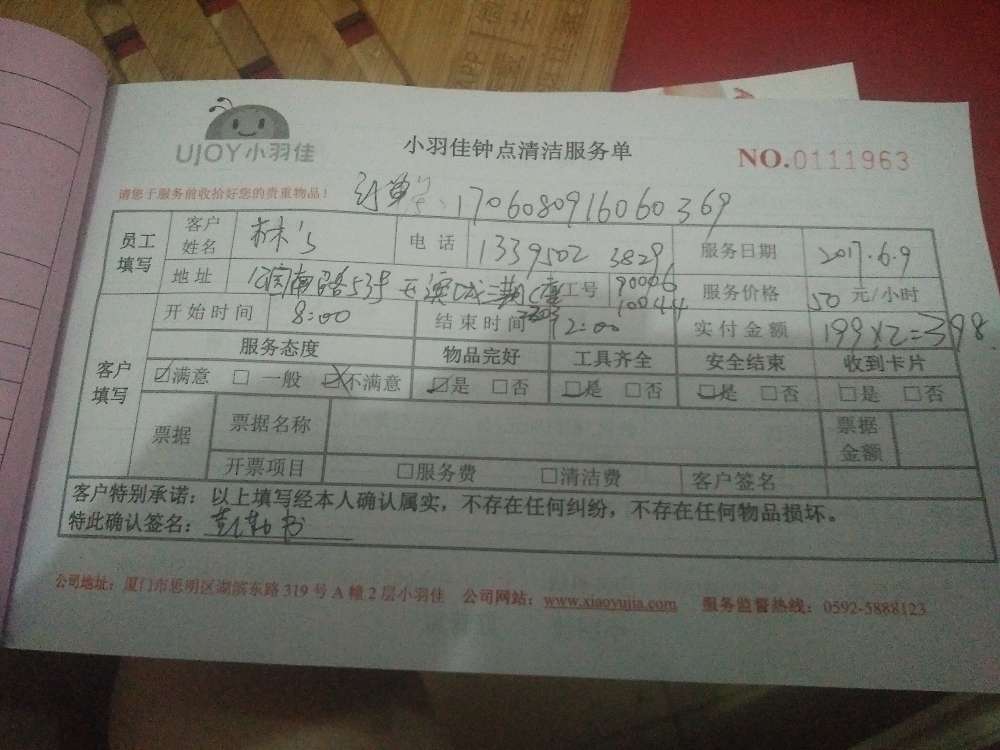 UJOY小羽佳
小羽佳钟点清洁服务单
NO.0111963
请您于服务前收拾好您的贵重物品！
订单号：170608091606 0369
员工填写 客户姓名 林's 电话 1339502 3829 服务日期 2017.6.9
地址 南路53号 工号 90006 10044 服务价格 50元/小时
客户填写 开始时间 8:00 结束时间 12:00 实付金额 199×2=398
服务态度 物品完好 工具齐全 安全结束 收到卡片
☑满意 □一般 ☒不满意 ☑是 □否 ☑是 □否 ☑是 □否 □是 □否
票据 票据名称 票据金额
开票项目 □服务费 □清洁费 客户签名
客户特别承诺：以上填写经本人确认属实，不存在任何纠纷，不存在任何物品损坏。
特此确认签名：
公司地址：厦门市思明区湖滨东路319号A幢2层小羽佳 公司网站：www.xiaoyujia.com 服务监督热线：0592-5888123